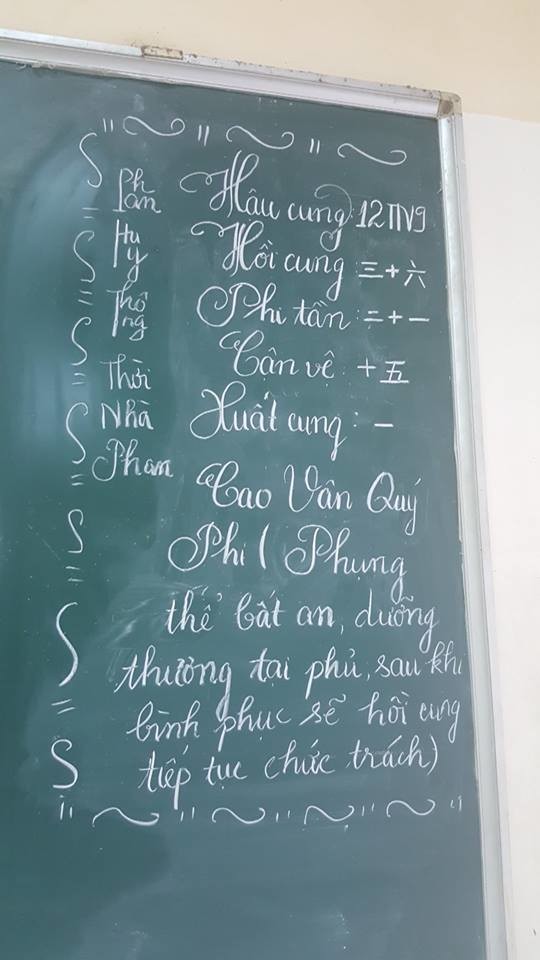 Ph
an
Hu
y
Thô
ng
Thời
Nhà
Phan
Hậu cung: 12TN9
Hồi cung 三+六
Phi tần : 二+一
Cận vệ +五
Xuất cung: 一
Cao Vân Quý
Phi ( Phụng
thể bất an, dưỡng
thương tại phủ, sau khi
bình phục sẽ hồi cung
tiếp tục chức trách)